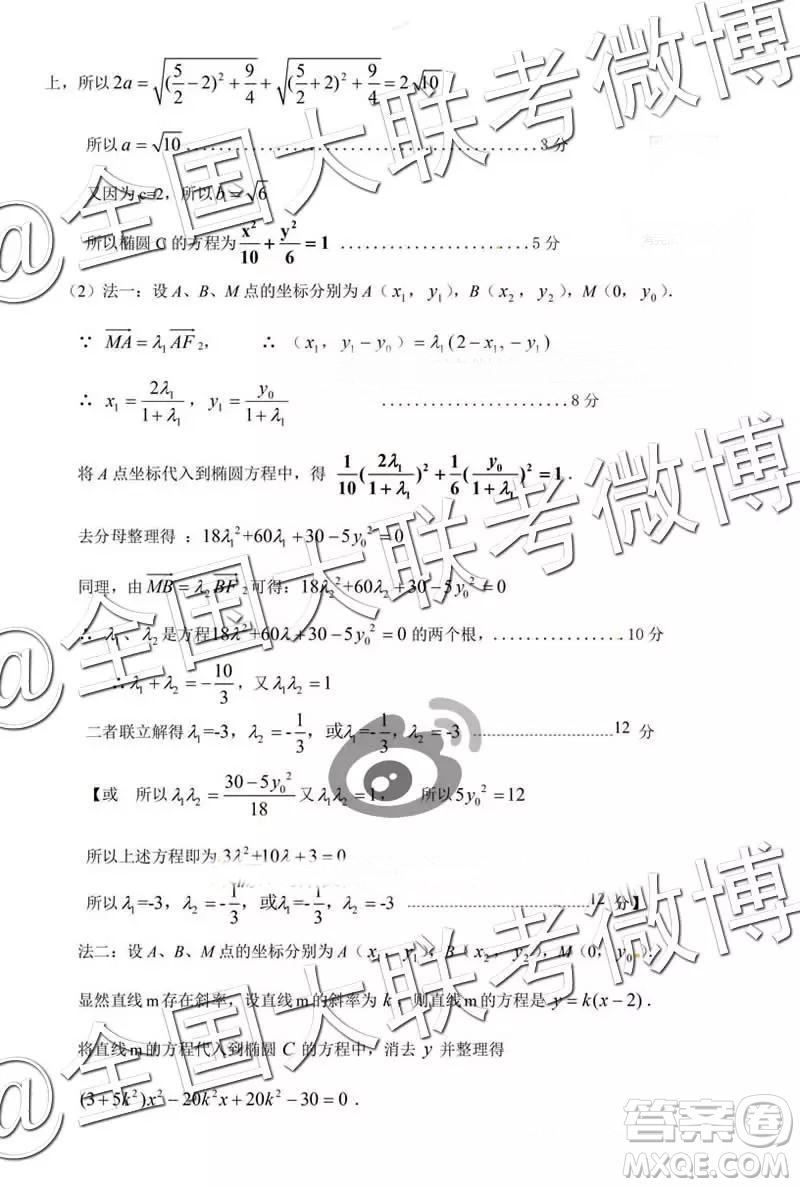 上，所以 2a = √((5/2 − 2)² + 9/4) + √((5/2 + 2)² + 9/4) = 2√10
所以 a = √10 ........................................ 3 分
又因为 c=2，所以 b = √6
所以椭圆 C 的方程为 x²/10 + y²/6 = 1 ........................ 5 分
（2）法一：设 A、B、M 点的坐标分别为 A（x₁，y₁），B（x₂，y₂），M（0，y₀）.
∵ MA = λ₁AF₂， ∴（x₁，y₁ − y₀）= λ₁(2 − x₁, −y₁)
∴ x₁ = 2λ₁/(1+λ₁)，y₁ = y₀/(1+λ₁) ........................ 8 分
将 A 点坐标代入到椭圆方程中，得 1/10(2λ₁/(1+λ₁))² + 1/6(y₀/(1+λ₁))² = 1 .
去分母整理得 ：18λ₁²+60λ₁+30−5y₀² = 0
同理，由 MB = λ₂BF₂ 可得：18λ₂²+60λ₂+30−5y₀² = 0
∴ λ₁、λ₂ 是方程18λ²+60λ+30−5y₀² = 0 的两个根，................ 10 分
∴ λ₁+λ₂ = −10/3，又λ₁λ₂ = 1
二者联立解得λ₁=-3，λ₂=-1/3，或λ₁=-1/3，λ₂=-3 ........................ 12 分
【或 所以λ₁λ₂ = (30−5y₀²)/18 又λ₁λ₂ = 1， 所以5y₀² = 12
所以上述方程即为 3λ²+10λ+3 = 0
所以λ₁=-3，λ₂=-1/3，或λ₁=-1/3，λ₂=-3 ........................ 12 分】
法二：设 A、B、M 点的坐标分别为 A（x₁，y₁），B（x₂，y₂），M（0，y₀）.
显然直线 m 存在斜率，设直线 m 的斜率为 k，则直线 m 的方程是 y = k(x − 2) .
将直线 m 的方程代入到椭圆 C 的方程中，消去 y 并整理得
(3+5k²)x² − 20k²x + 20k² − 30 = 0 .
@全国大联考微博
@全国大联考微博
@全国大联考微博
答案卷
MXQE.COM